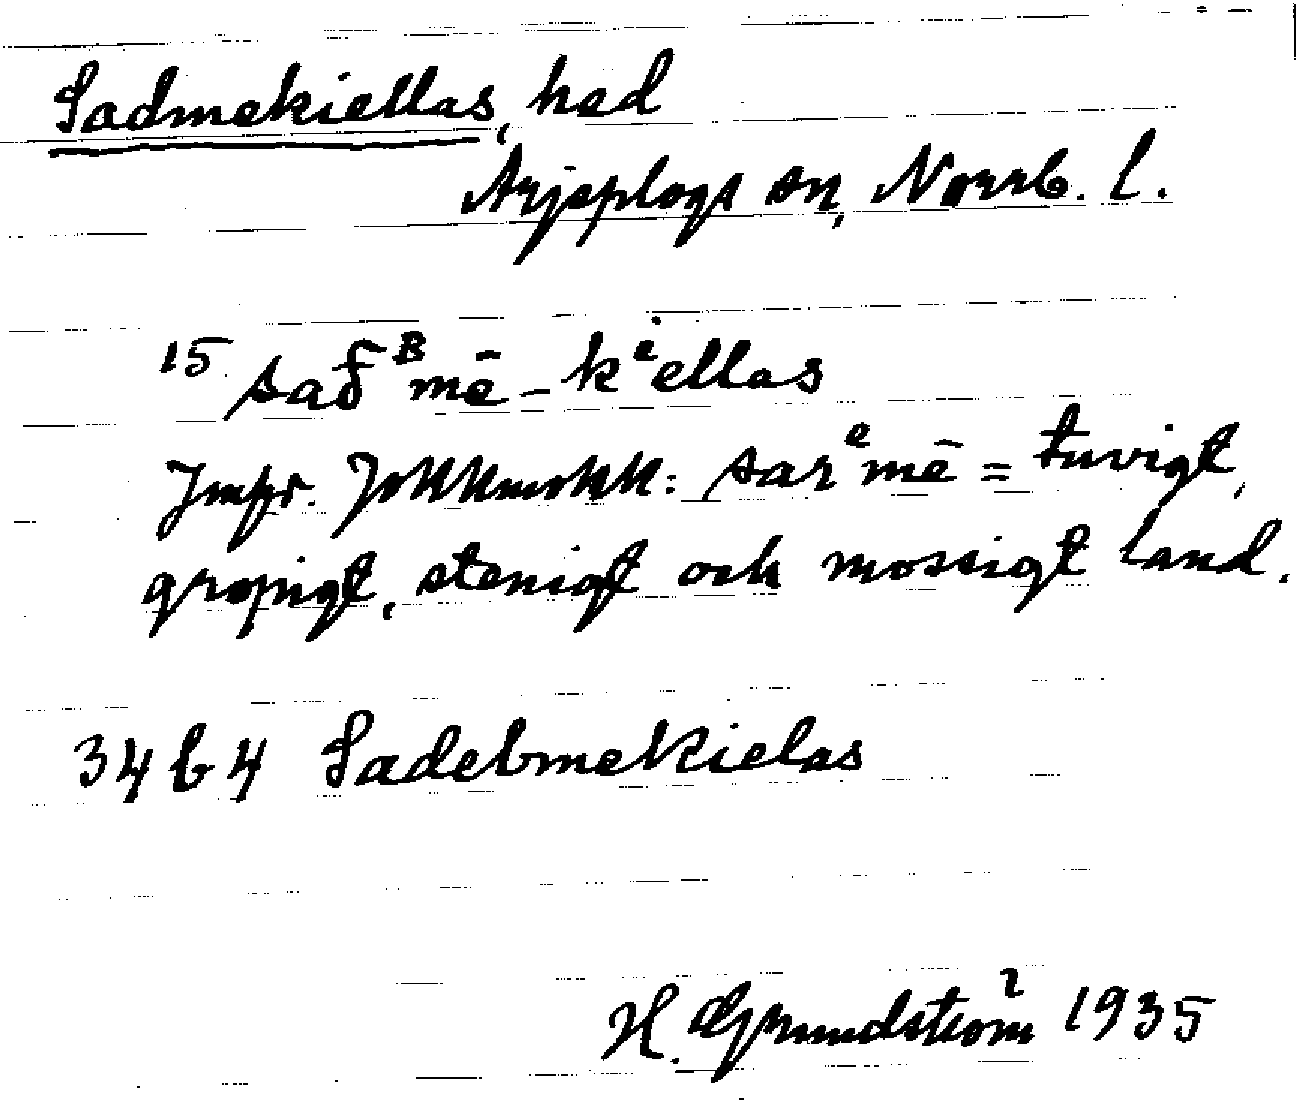 Sadmekiellas, hed
Arjeplogs sn, Norrb. l.
15 saδᴮmē-kⁱellas
Impr. Jokkmokk: sarᵉmē = tuvigt,
gropigt, stenigt och mossigt land.
34 b 4 Sadebmekielas
H. Grundström 1935